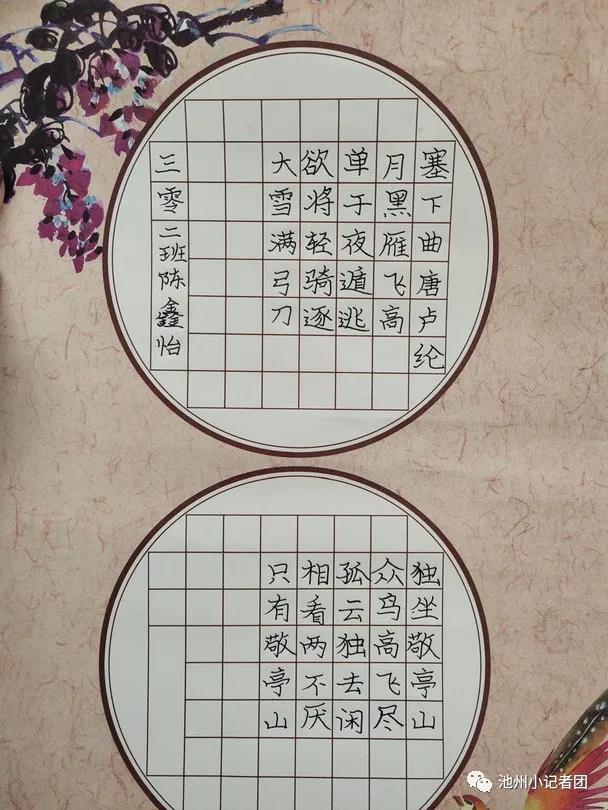 塞下曲唐卢纶
月黑雁飞高
单于夜遁逃
欲将轻骑逐
大雪满弓刀
三零二班陈鑫怡
独坐敬亭山
众鸟高飞尽
孤云独去闲
相看两不厌
只有敬亭山
池州小记者团